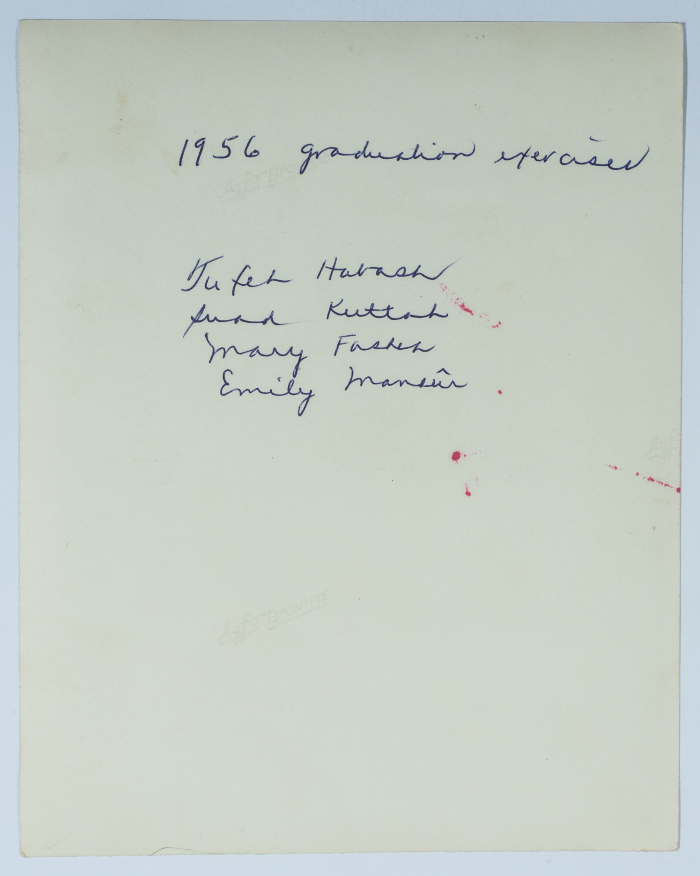 1956 graduation exercises
Agfa-Brovira
Tufeh Habash
Suad Kuttab
Mary Fasheh
Emily Mansûr
Agfa
Agfa-Brovira